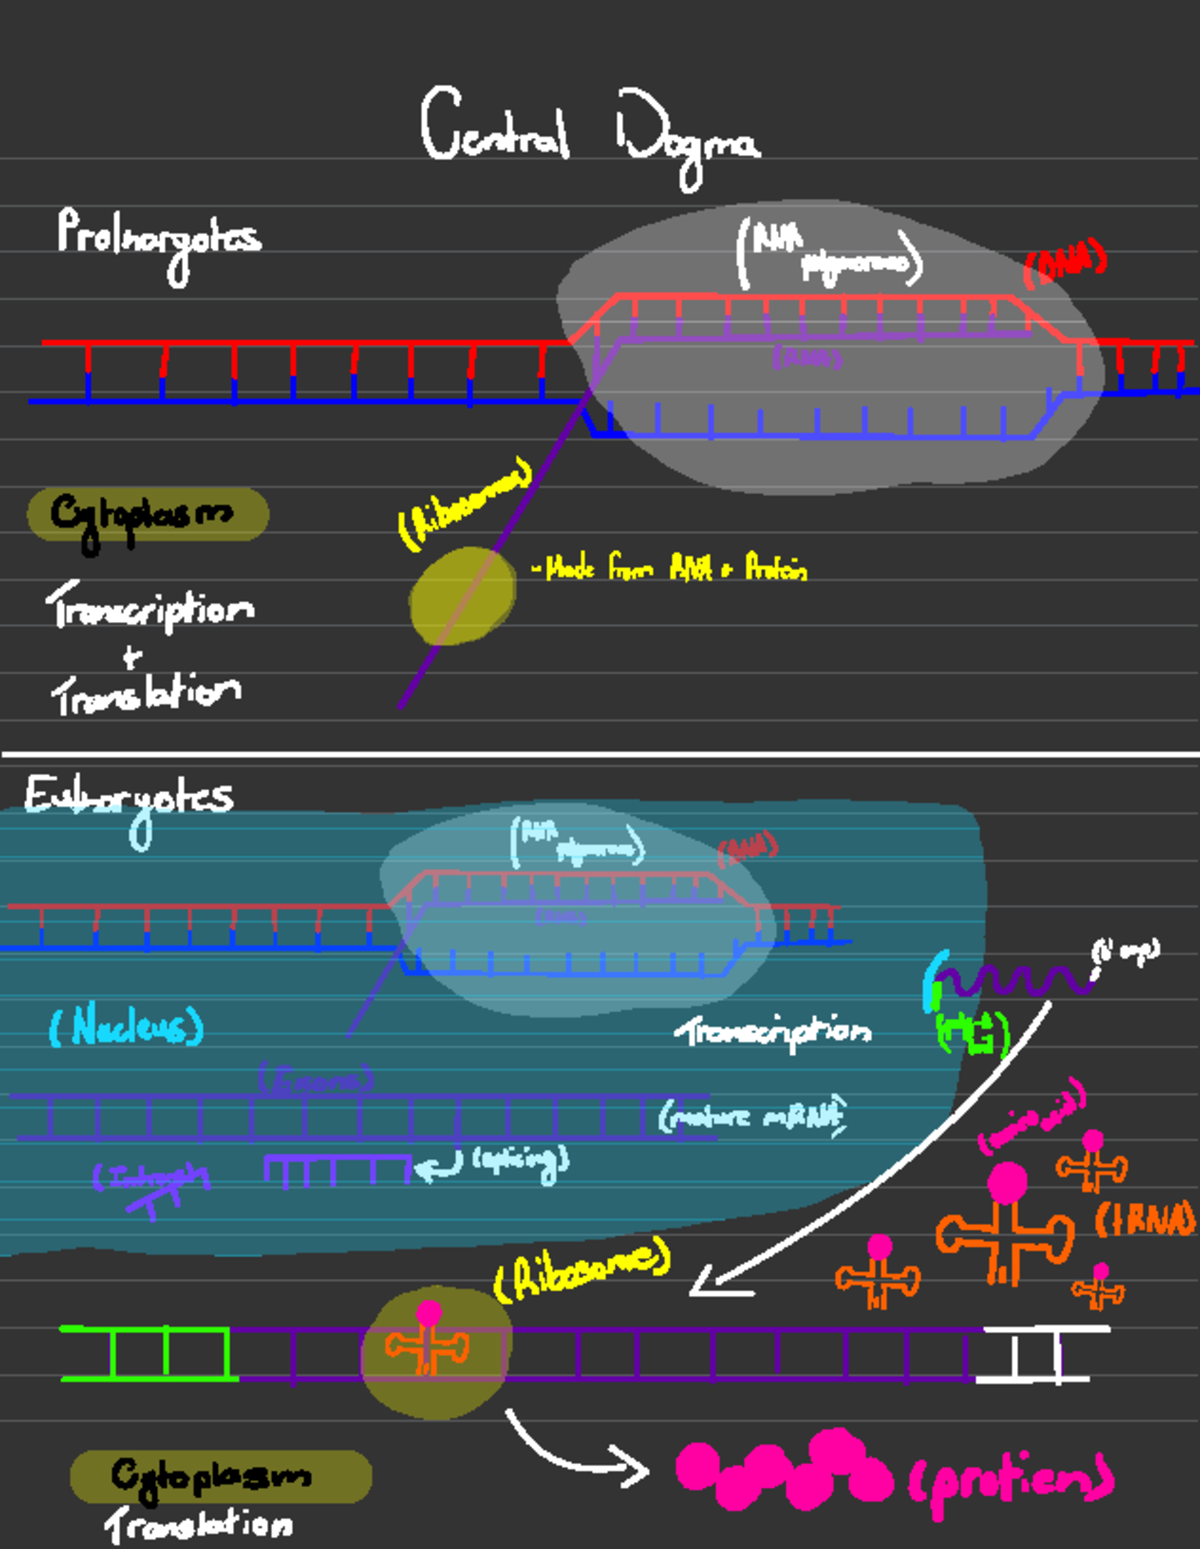 Central Dogma
Prokaryotes
(RNA
polymerase)
(DNA)
(RNA)
Cytoplasm
(Ribosome)
- Made from RNA + Protein
Transcription
+
Translation
Eukaryotes
(RNA
polymerase)
(DNA)
(RNA)
(Nucleus)
Transcription
cap)
(Exons)
(mature mRNA)
(splicing)
(amino acid)
(tRNA)
(Ribosome)
Cytoplasm
Translation
(protien)